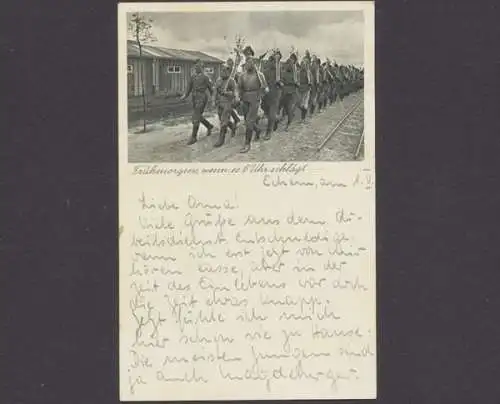 Frühmorgens, wenn es 6 Uhr schlägt
Echem, am 1.V.
Liebe Oma!
Viele Grüße aus dem Ar-
beitsdienst. Entschuldige,
wenn ich erst jetzt von mir
hören lasse, aber in der
Zeit des Einlebens war doch
die Zeit etwas knapp.
Jetzt fühle ich mich
hier schon wie zu Hause.
Die meisten Jungen sind
ja auch Magdeburger.